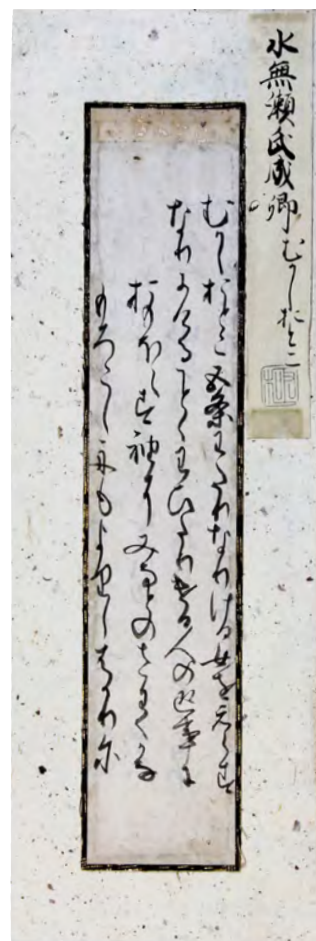 水無瀬氏成卿 むかしおとこ
むかしおとこ五条わたりなりける女をえゝす
なりにけることゝわひたりける人の返事に
おもほえす袖にみなとのさわくかな
もろこし舟もよりしはかりに